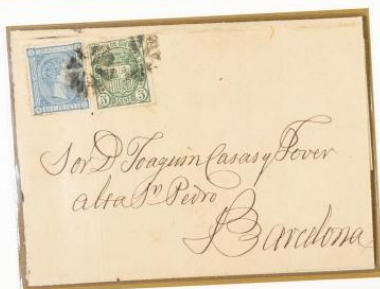 5 CENT. 5
Sor D. Joaquin Casas y Fover
alta Sn. Pedro
Barcelona